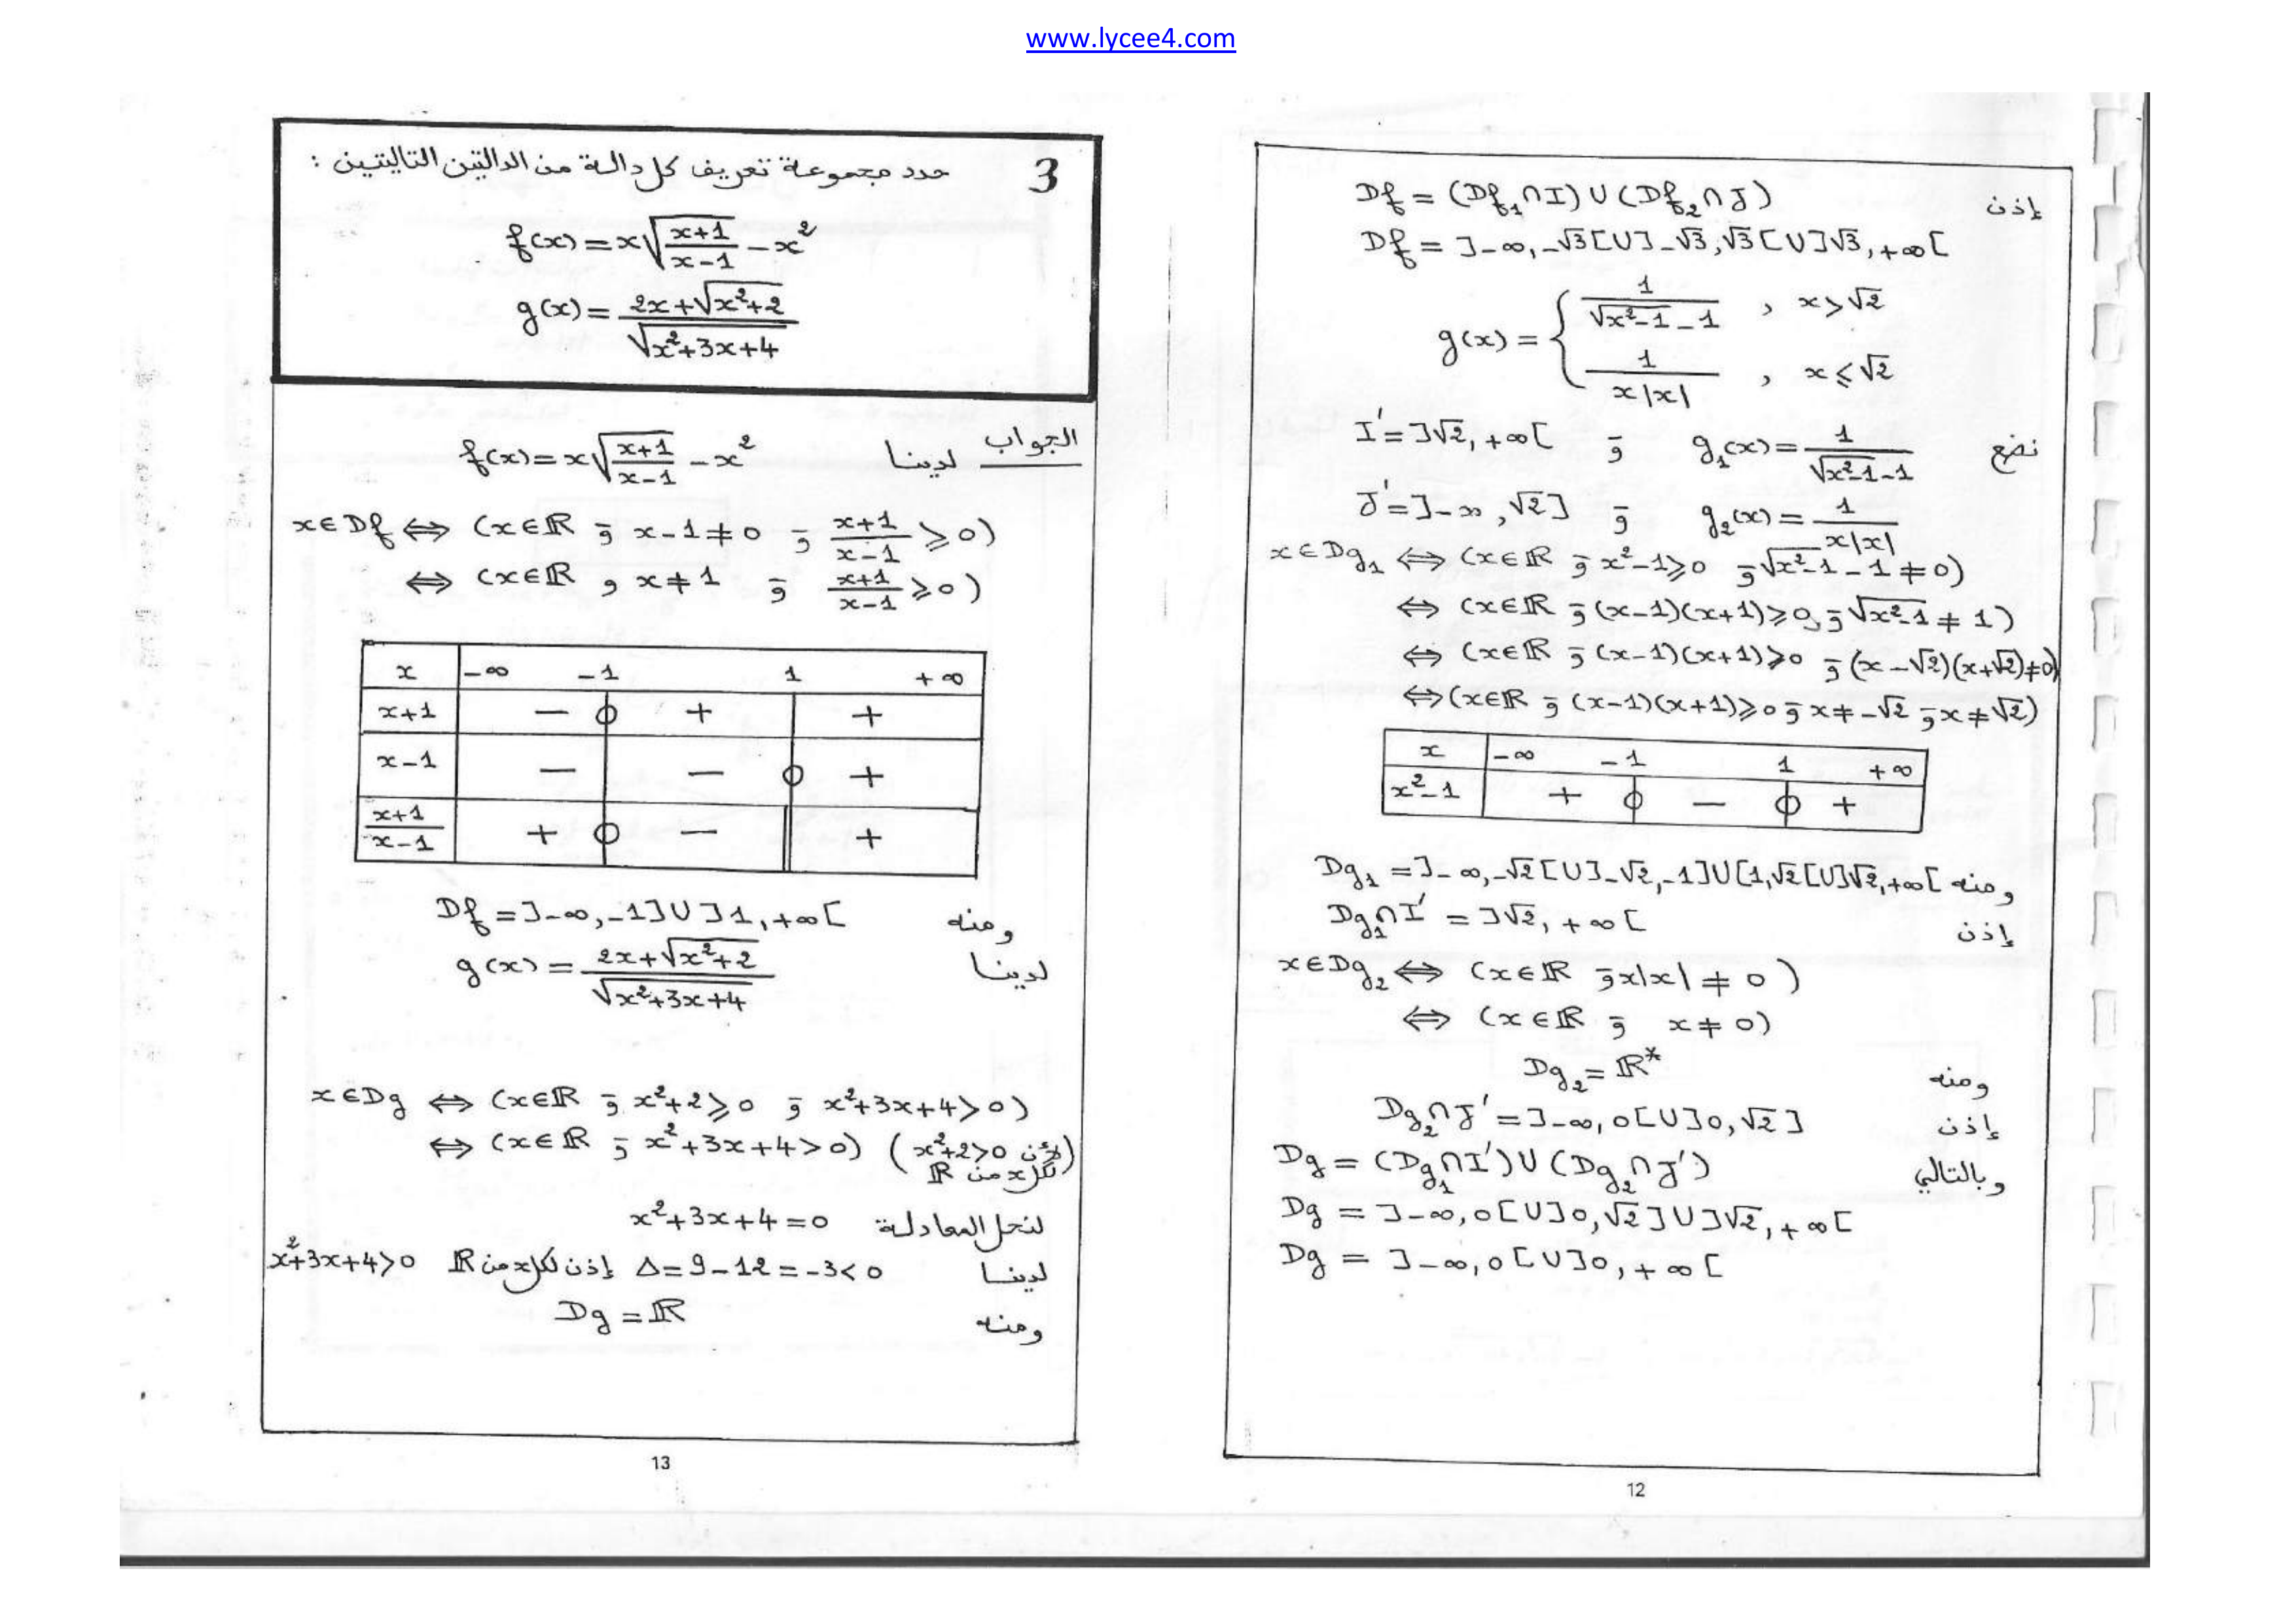 www.lycee4.com
إذن Df = (Df₁∩I)∪(Df₂∩J)
Df = ]-∞,-√3[∪]-√3,√3[∪]√3,+∞[
g(x) = { 1/(√(x²-1) -1) , x>√2
1/(x|x|) , x⩽√2
نضع g₁(x) = 1/(√(x²-1) -1) و I' = ]√2,+∞[
g₂(x) = 1/(x|x|) و J' = ]-∞,√2]
x∈Dg₁ ⇔ (x∈ℝ و x²-1⩾0 و √(x²-1) -1≠0)
⇔ (x∈ℝ و (x-1)(x+1)⩾0 و √(x²-1) ≠ 1)
⇔ (x∈ℝ و (x-1)(x+1)⩾0 و (x-√2)(x+√2)≠0)
⇔ (x∈ℝ و (x-1)(x+1)⩾0 و x≠-√2 و x≠√2)
x -∞ -1 1 +∞
x²-1 + 0 - 0 +
ومنه Dg₁ = ]-∞,-√2[∪]-√2,-1]∪[1,√2[∪]√2,+∞[
إذن Dg₁∩I' = ]√2,+∞[
x∈Dg₂ ⇔ (x∈ℝ و x|x| ≠ 0)
⇔ (x∈ℝ و x≠0)
ومنه Dg₂ = ℝ*
إذن Dg₂∩J' = ]-∞,0[∪]0,√2]
وبالتالي Dg = (Dg₁∩I')∪(Dg₂∩J')
Dg = ]-∞,0[∪]0,√2]∪]√2,+∞[
Dg = ]-∞,0[∪]0,+∞[
12
3 حدد مجموعة تعريف كل دالة من الدالتين التاليتين :
f(x) = x√((x+1)/(x-1)) - x²
g(x) = (2x+√(x²+2))/√(x²+3x+4)
الجواب لدينا f(x) = x√((x+1)/(x-1)) - x²
x∈Df ⇔ (x∈ℝ و x-1≠0 و (x+1)/(x-1) ⩾0)
⇔ (x∈ℝ , x≠1 و (x+1)/(x-1) ⩾0)
x -∞ -1 1 +∞
x+1 - 0 + +
x-1 - - 0 +
(x+1)/(x-1) + 0 - || +
ومنه Df = ]-∞,-1]∪]1,+∞[
لدينا g(x) = (2x+√(x²+2))/√(x²+3x+4)
x∈Dg ⇔ (x∈ℝ و x²+2⩾0 و x²+3x+4>0)
⇔ (x∈ℝ و x²+3x+4>0) (لأن x²+2>0
لكل x من ℝ)
لنحل المعادلة x²+3x+4=0
لدينا Δ=9-12=-3<0 إذن لكل x من ℝ x²+3x+4>0
ومنه Dg = ℝ
13